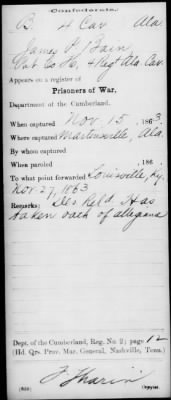 Confederate.
B 4 Cav Ala
James P. Bain
Pvt Co H, 4 Regt Ala. Cav.
Appears on a register of
Prisoners of War,
Department of the Cumberland.
When captured Nov. 15, 1863
Where captured Martinsville, Ala.
By whom captured
When paroled , 186 .
To what point forwarded Louisville, Ky.
Nov. 27, 1863
Remarks: Des Reld. Has
taken oath of allegance
Dept. of the Cumberland, Reg. No. 2; page 12
(Hd. Qrs. Prov. Mar. General, Nashville, Tenn.)
Tharin
Copyist.